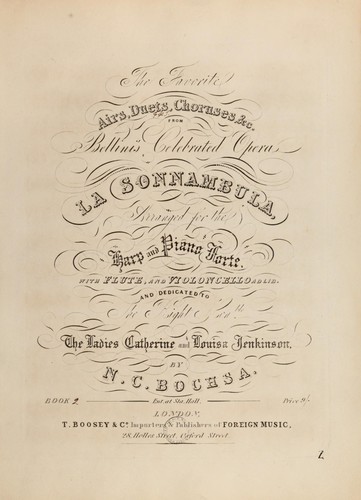 The Favorite
Airs, Duets, Choruses, &c.
FROM
Bellini's Celebrated Opera
LA SONNAMBULA,
Arranged for the
Harp and Piano Forte,
WITH FLUTE, AND VIOLONCELLO AD LIB.
AND DEDICATED TO
The Right Honble.
The Ladies Catherine and Louisa Jenkinson,
BY
N. C. BOCHSA.
BOOK 2. Ent. at Sta. Hall. Price 9/-
LONDON,
T. BOOSEY & Co. Importers & Publishers of FOREIGN MUSIC,
28, Holles Street, Oxford Street.